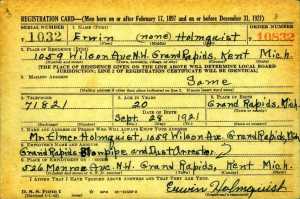 REGISTRATION CARD—(Men born on or after February 17, 1897 and on or before December 31, 1921)
SERIAL NUMBER 1. NAME (Print) ORDER NUMBER
1032 Erwin (none) Holmquist 10832
2. PLACE OF RESIDENCE (Print)
1059 Wilson Ave N.W. Grand Rapids, Kent Mich.
[THE PLACE OF RESIDENCE GIVEN ON THE LINE ABOVE WILL DETERMINE LOCAL BOARD
JURISDICTION; LINE 2 OF REGISTRATION CERTIFICATE WILL BE IDENTICAL]
3. MAILING ADDRESS
Same
4. TELEPHONE 5. AGE IN YEARS 6. PLACE OF BIRTH
71821 20 Grand Rapids,
DATE OF BIRTH
Sept. 28 1921 Mich.
7. NAME AND ADDRESS OF PERSON WHO WILL ALWAYS KNOW YOUR ADDRESS
Mr. Elmer Holmquist, 1059 Wilson Ave. Grand Rapids, Mich
8. EMPLOYER'S NAME AND ADDRESS
Grand Rapids Blowpipe and Dust Arrestor
9. PLACE OF EMPLOYMENT OR BUSINESS
526 Monroe Ave. N.W. Grand Rapids, Kent Mich.
I AFFIRM THAT I HAVE VERIFIED ABOVE ANSWERS AND THAT THEY ARE TRUE.
D. S. S. Form 1
Erwin Holmquist